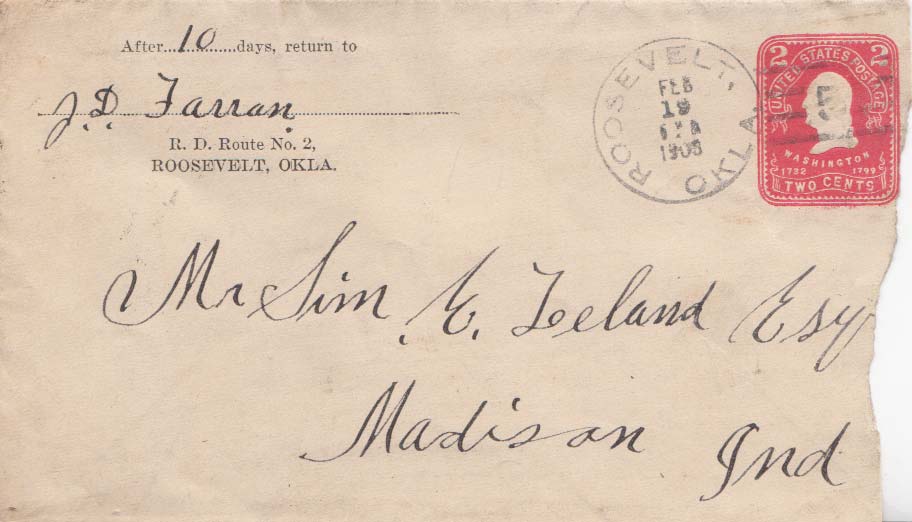 After...10...days, return to
J.D. Farran
R. D. Route No. 2,
ROOSEVELT, OKLA.
ROOSEVELT, OKLA
FEB
19
1908
2 2
UNITED STATES POSTAGE
WASHINGTON
1732 1799
TWO CENTS
Mr Sim E. Leland Esq
Madison Ind